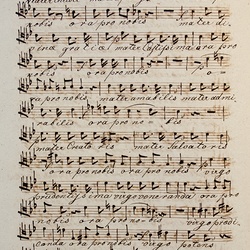 nobis ora pro nobis mater di
vina gratia mater castissima ora pro
nobis ora pro nobis o
ra pro nobis mater amabilis mater admi
rabilis ora pro no bis
mater Creatoris mater Salvatoris
ora pro nobis ora pro nobis virgo
prudentissima virgo veneranda ora pro
nobis ora pro nobis virgo prædi
canda ora pro nobis virgo potens